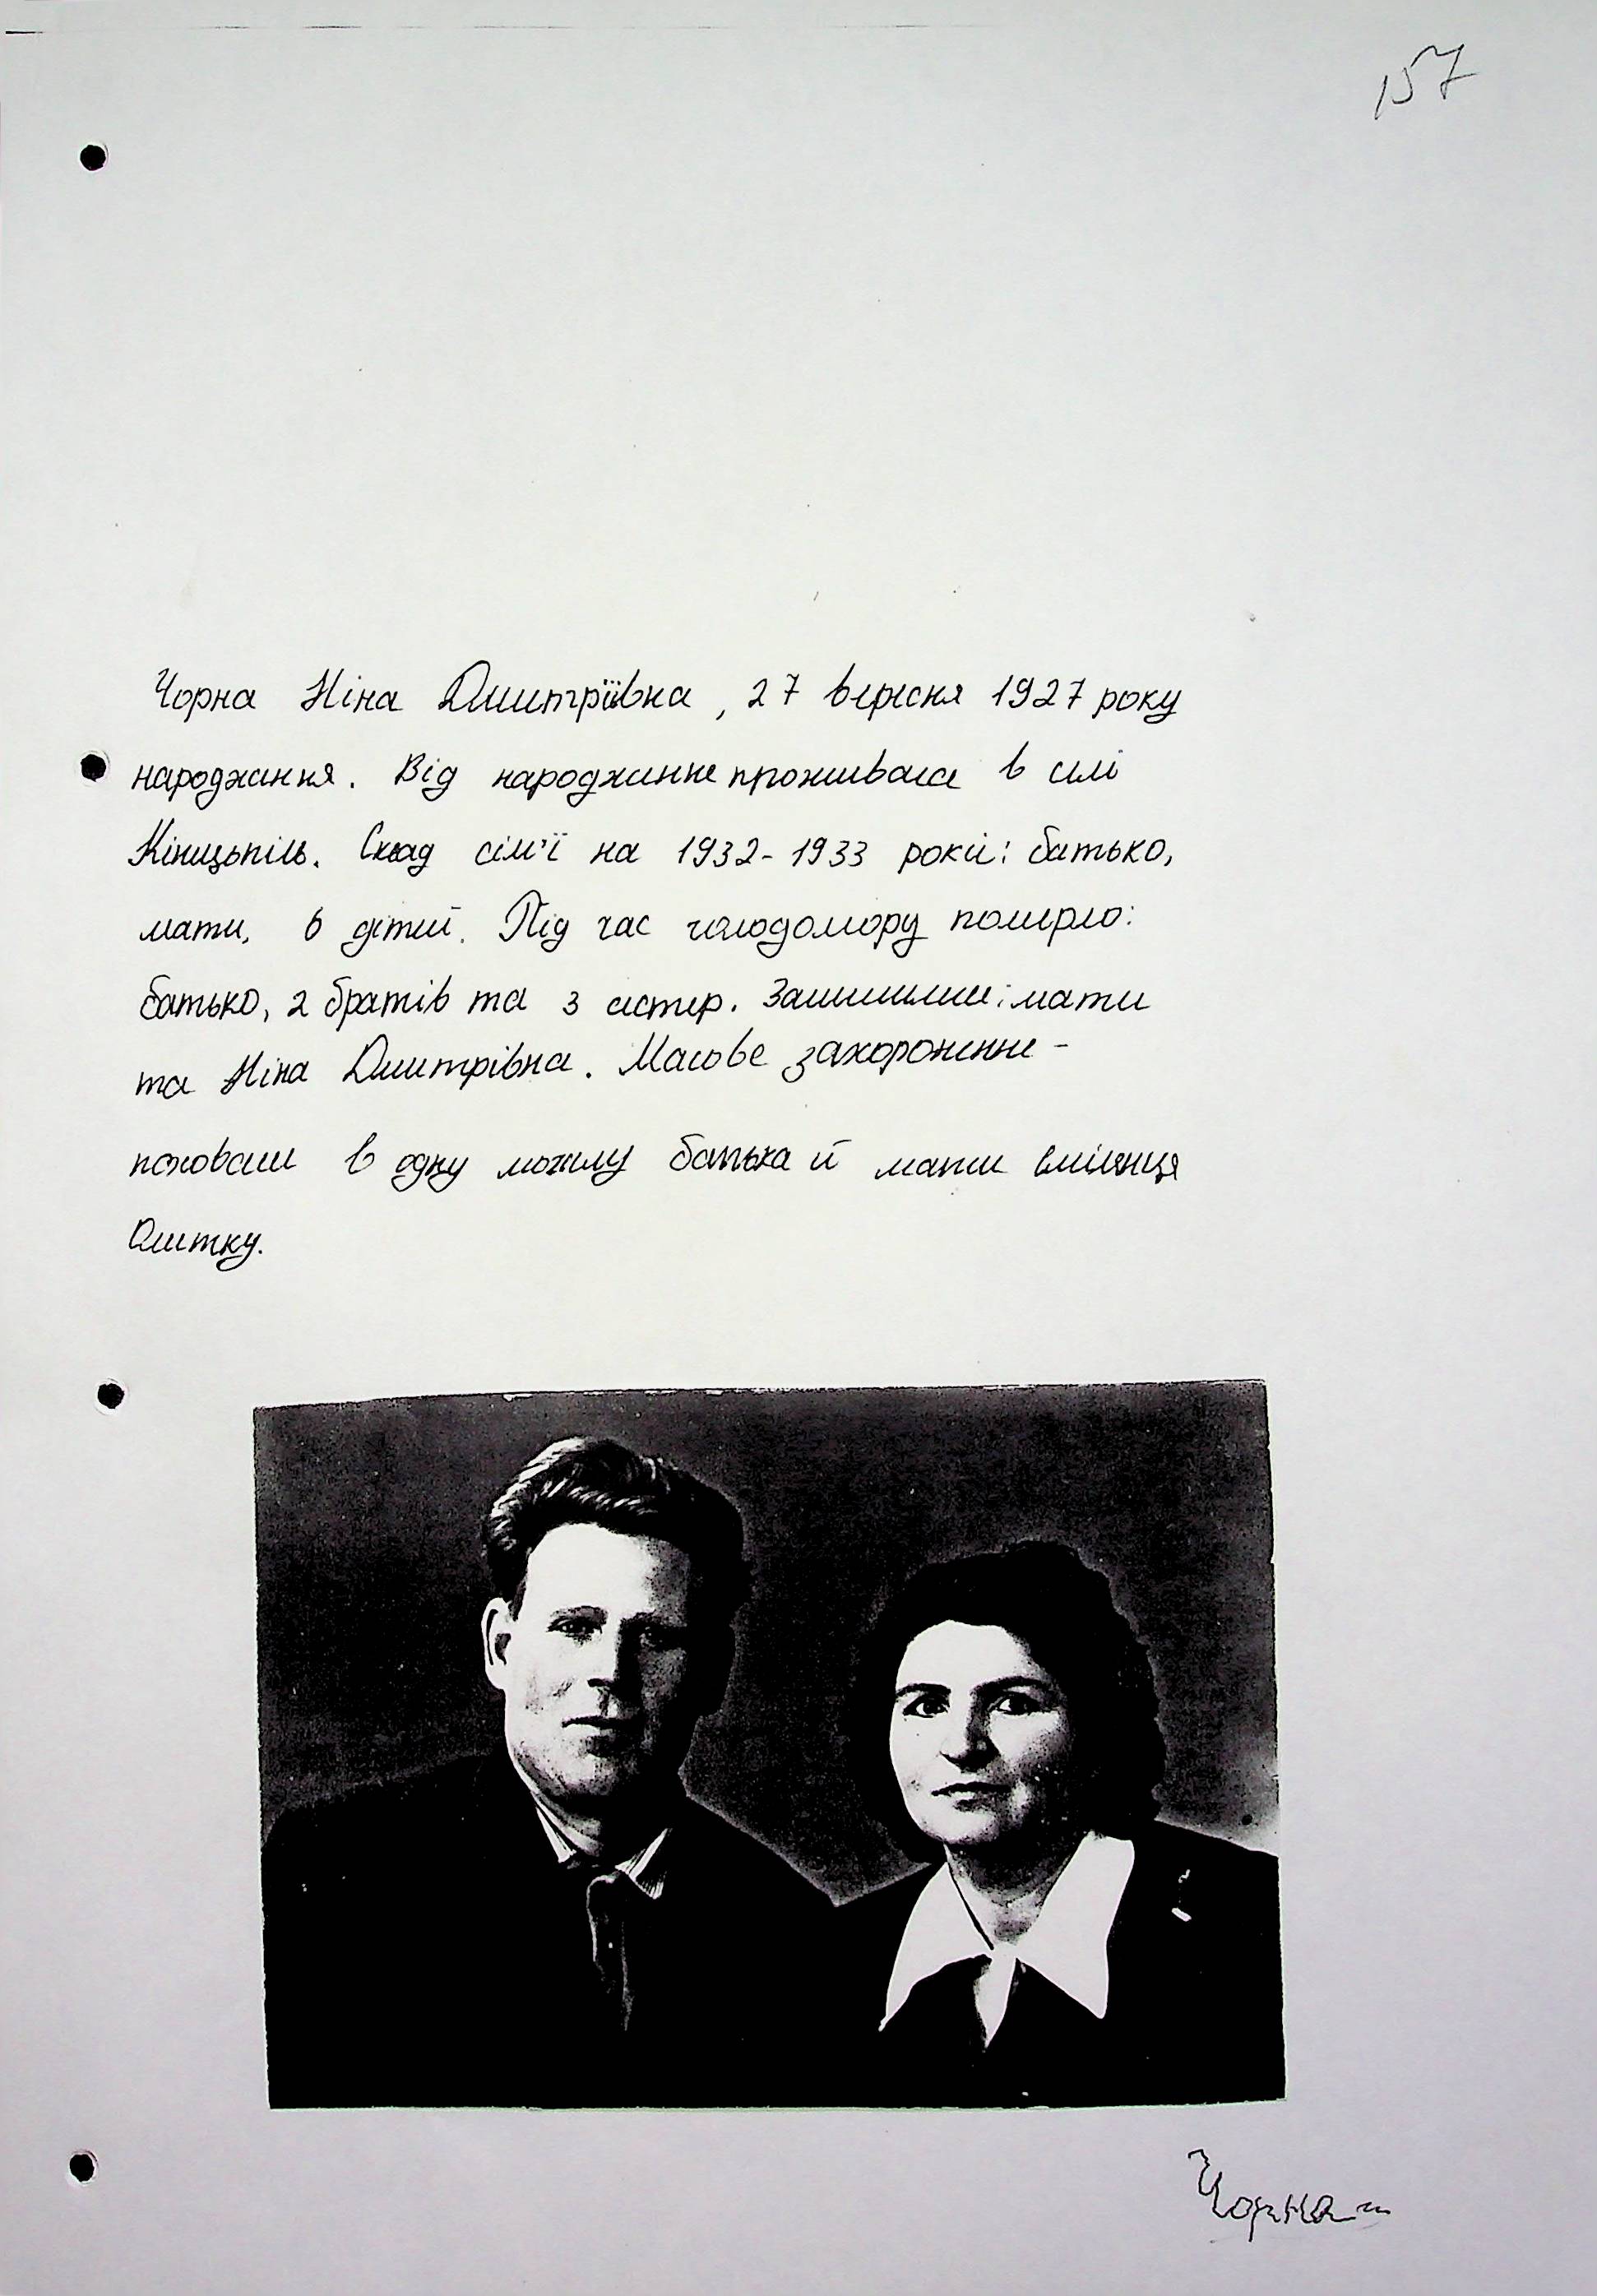 157
Чорна Ніна Дмитріївна, 27 вересня 1927 року
народження. Від народження проживала в селі
Кінецьпіль. Склад сім'ї на 1932-1933 роки: батько,
мати, 6 дітей. Під час голодомору померло:
батько, 2 братів та 3 сестер. Залишились: мати
та Ніна Дмитрівна. Масове захоронення -
поховали в одну могилу батька й мати
Дмитку.
Чорна